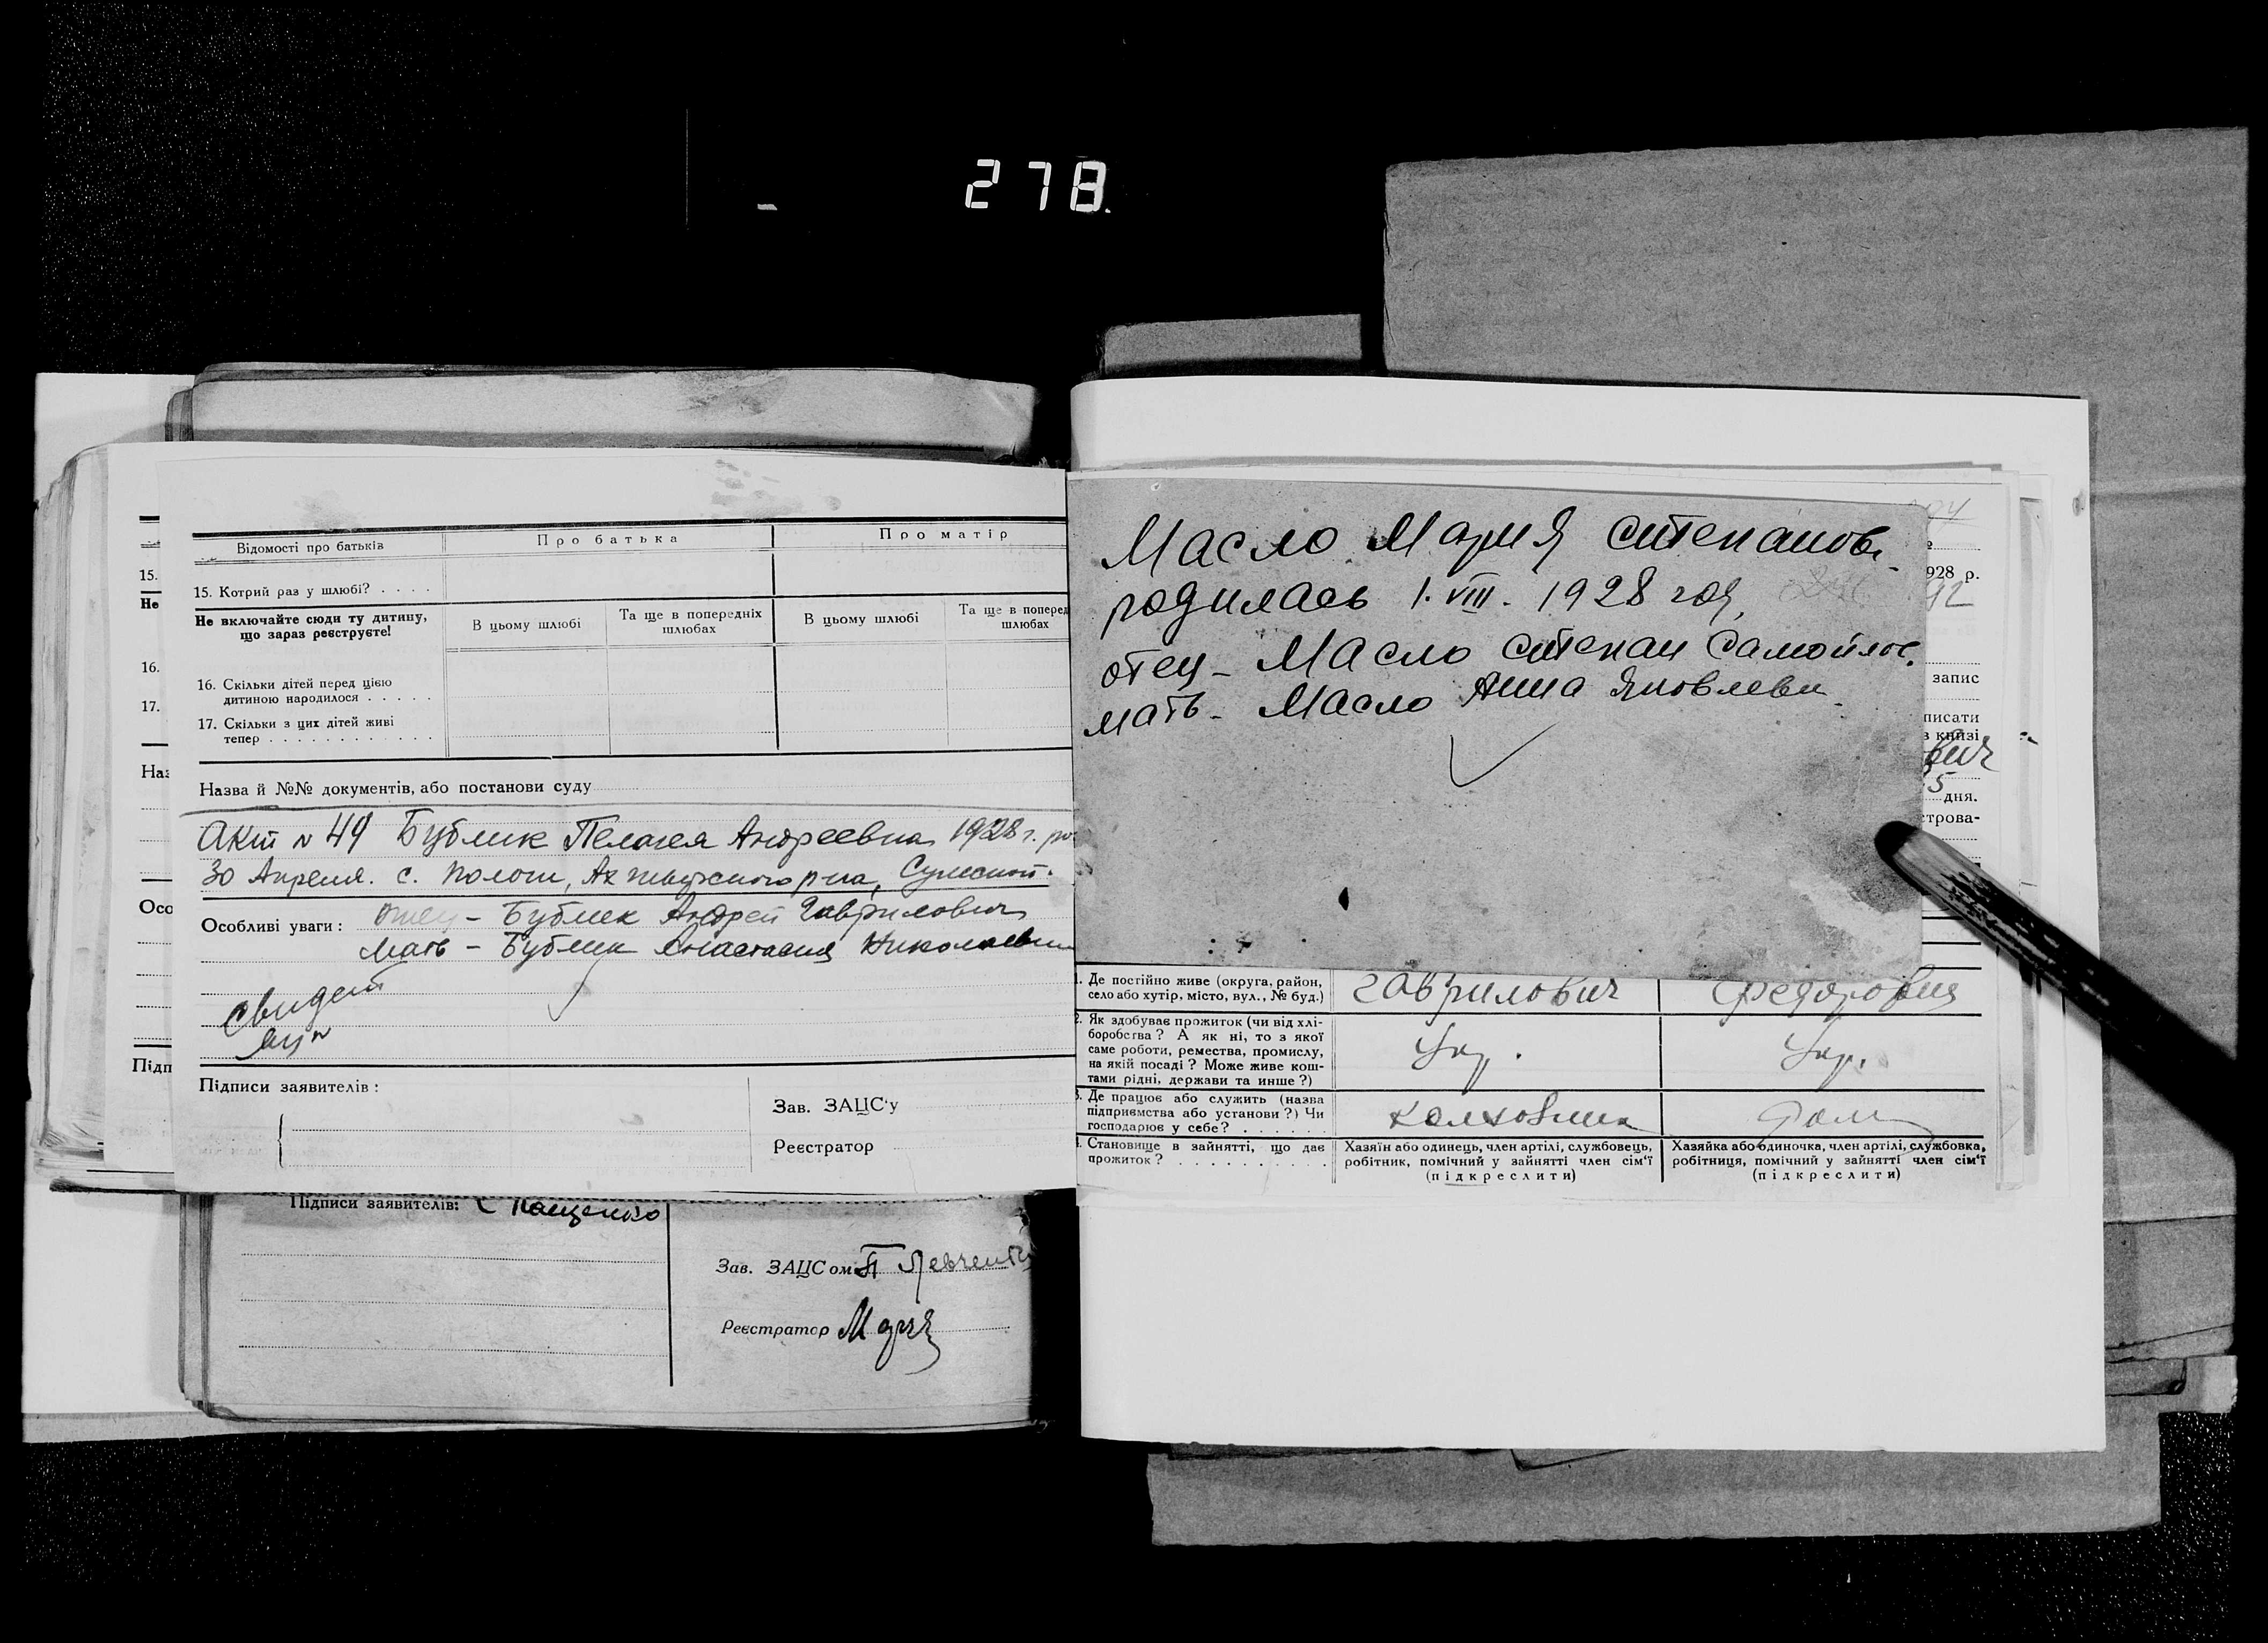 278.
Відомості про батьків
Про батька
Про матір
15. Котрий раз у шлюбі? . . . .
Не включайте сюди ту дитину,
що зараз реєструєте!
В цьому шлюбі
Та ще в попередніх
шлюбах
В цьому шлюбі
Та ще в поперед
шлюбах
16. Скільки дітей перед цією
дитиною народилося . . . . .
17. Скільки з цих дітей живі
тепер . . . . . . . . . . . .
Назва й №№ документів, або постанови суду
Акт N 49 Бублик Пелагея Андреевна 1928 г.
30 Апреля. с. Сумской.
Особливі уваги: отец - Бублик Андрей Гаврилович
мать - Бублик Анастасия Николаевн
свидет
Підписи заявителів:
Зав. ЗАЦС'у
Реєстратор
15.
Не
16.
17.
Наз
Осо
Підп
Підписи заявителів:
Зав. ЗАЦСом
Реєстратор
Масло Мария Степанов.
родилась 1. VIII. 1928 год,
отец - Масло Степан Самойлов.
мать - Масло Анна Яковлевн
928 р.
запис
писати
в книзі
вич
5 дня.
строва-
1. Де постійно живе (округа, район,
село або хутір, місто, вул., № буд.)
Гаврилович
Федоровна
2. Як здобуває прожиток (чи від хлі-
боробства? А як ні, то з якої
саме роботи, ремества, промислу,
на якій посаді? Може живе кош-
тами рідні, держави та инше?)
Укр.
Укр.
3. Де працює або служить (назва
підприємства або установи?) Чи
господарює у себе? . . . . . .
колхозник
4. Становище в зайнятті, що дає
прожиток? . . . . . . . . . .
Хазяїн або одинець, член артілі, службовець,
робітник, помічний у зайнятті член сім'ї
(підкреслити)
Хазяйка або одиночка, член артілі, службовка,
робітниця, помічний у зайнятті член сім'ї
(підкреслити)